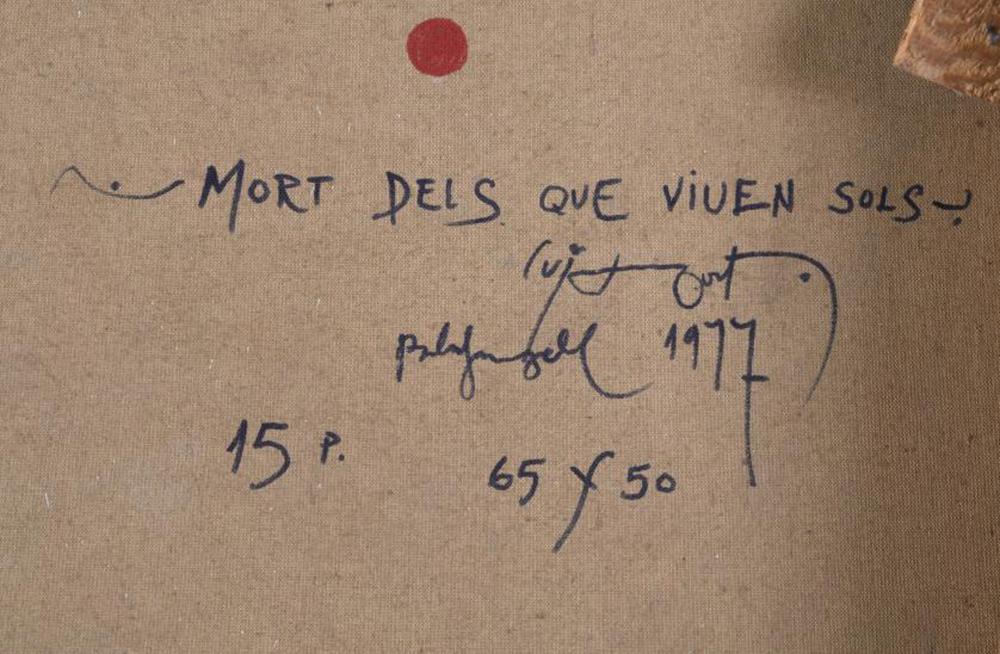 MORT DELS QUE VIUEN SOLS
Palafrugell 1977
15 P.
65 x 50